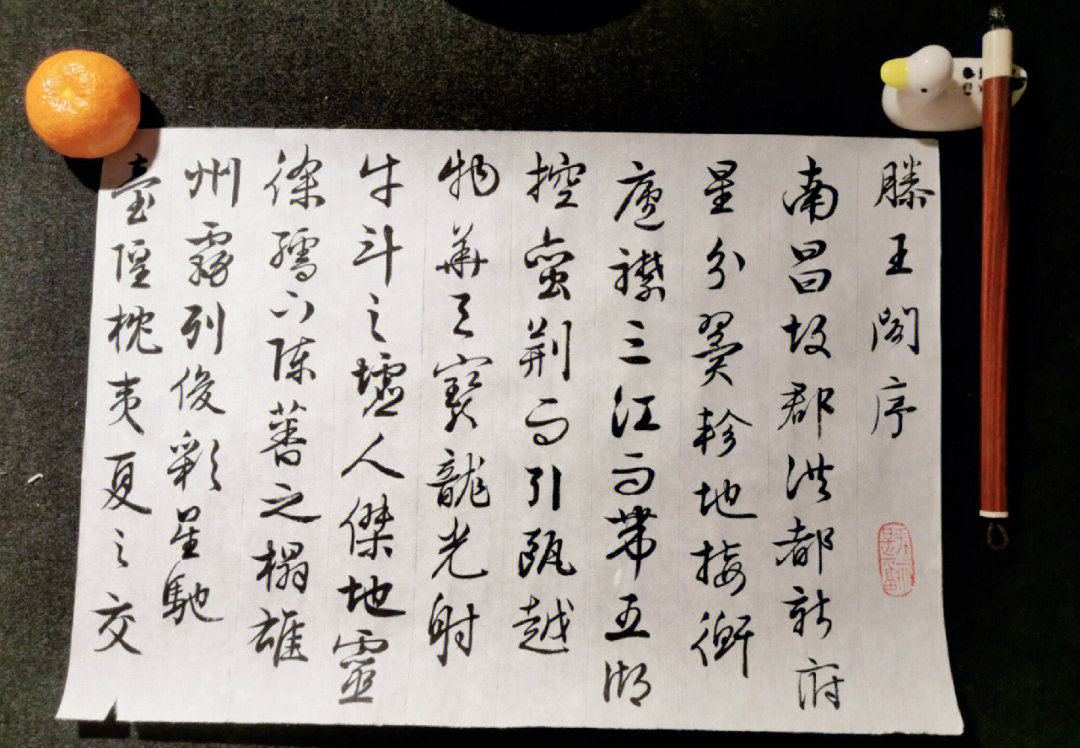 滕王閣序
南昌故郡洪都新府
星分翼軫地接衡
廬襟三江而帶五湖
控蠻荊而引甌越
物華天寶龍光射
牛斗之墟人傑地靈
徐孺下陳蕃之榻雄
州霧列俊彩星馳
臺隍枕夷夏之交